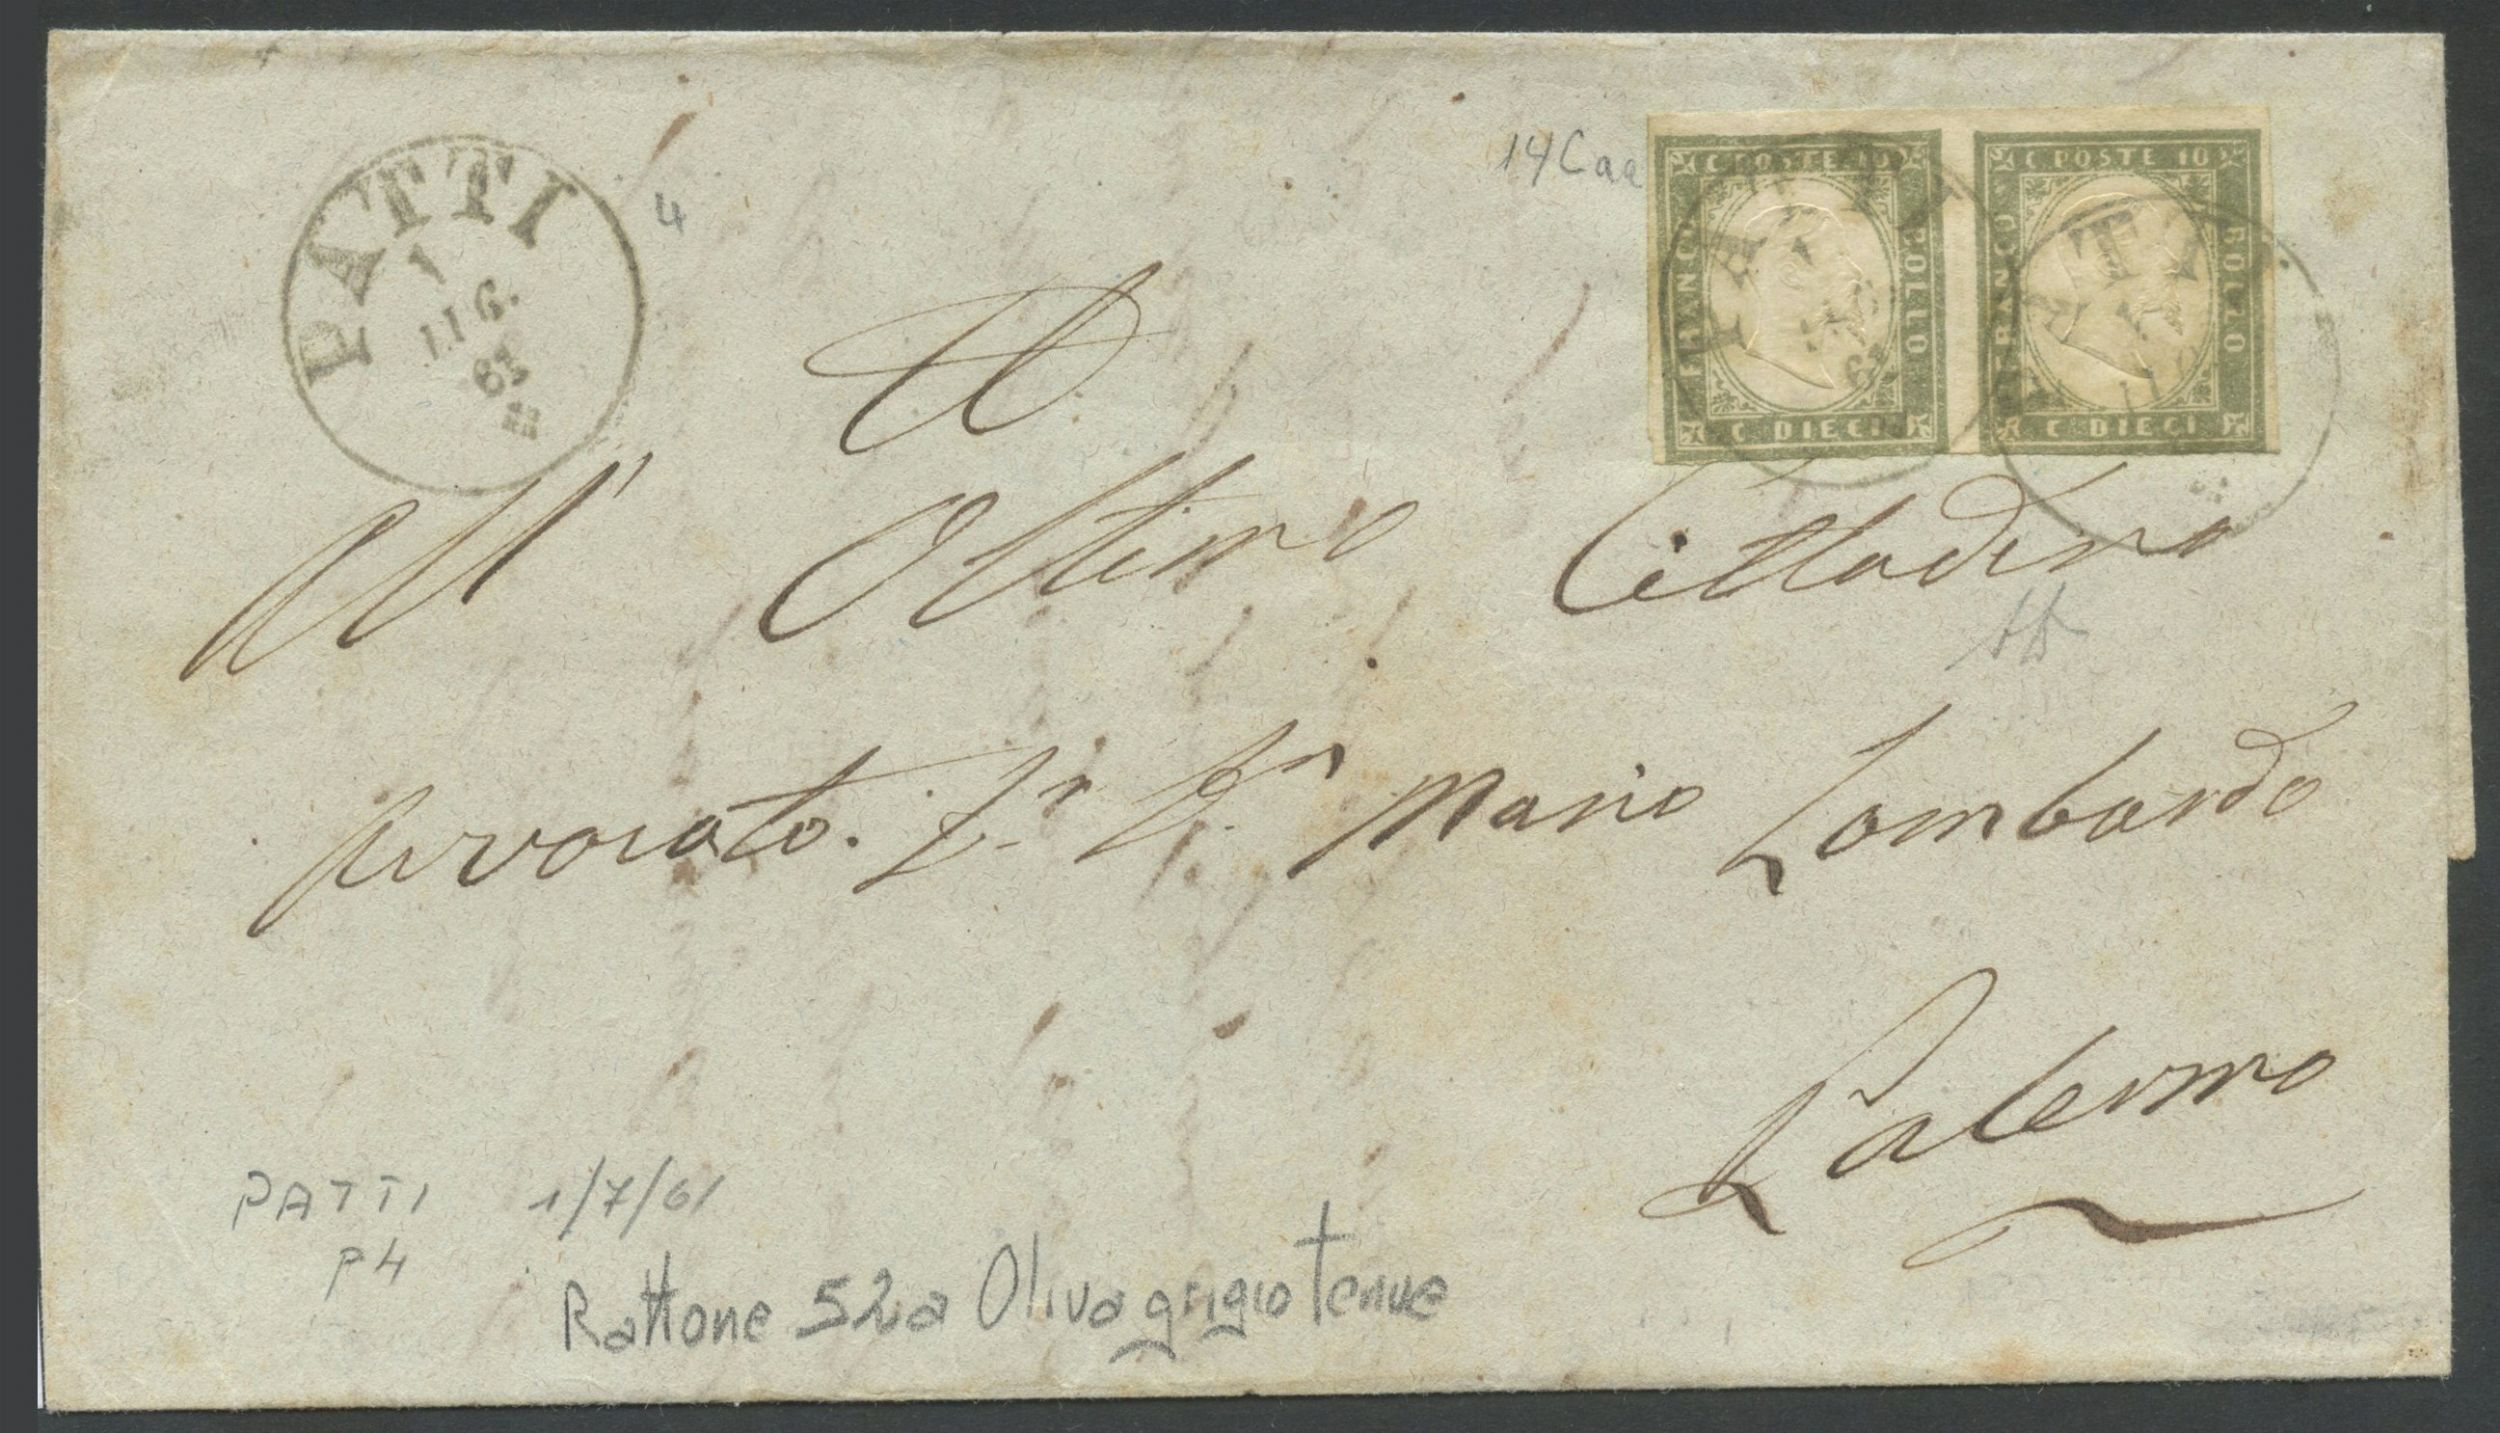 PATTI
1
LUG.
61
4
14Caa
C POSTE 10
FRANCO
BOLLO
C DIECI
C POSTE 10
FRANCO
BOLLO
C DIECI
PATTI
PATTI
Al
All' Ottimo Cittadino
Avvocato. Mario Lombardo
Palermo
PATTI 1/7/61
P4
Rattone 52a Oliva grigio tenue